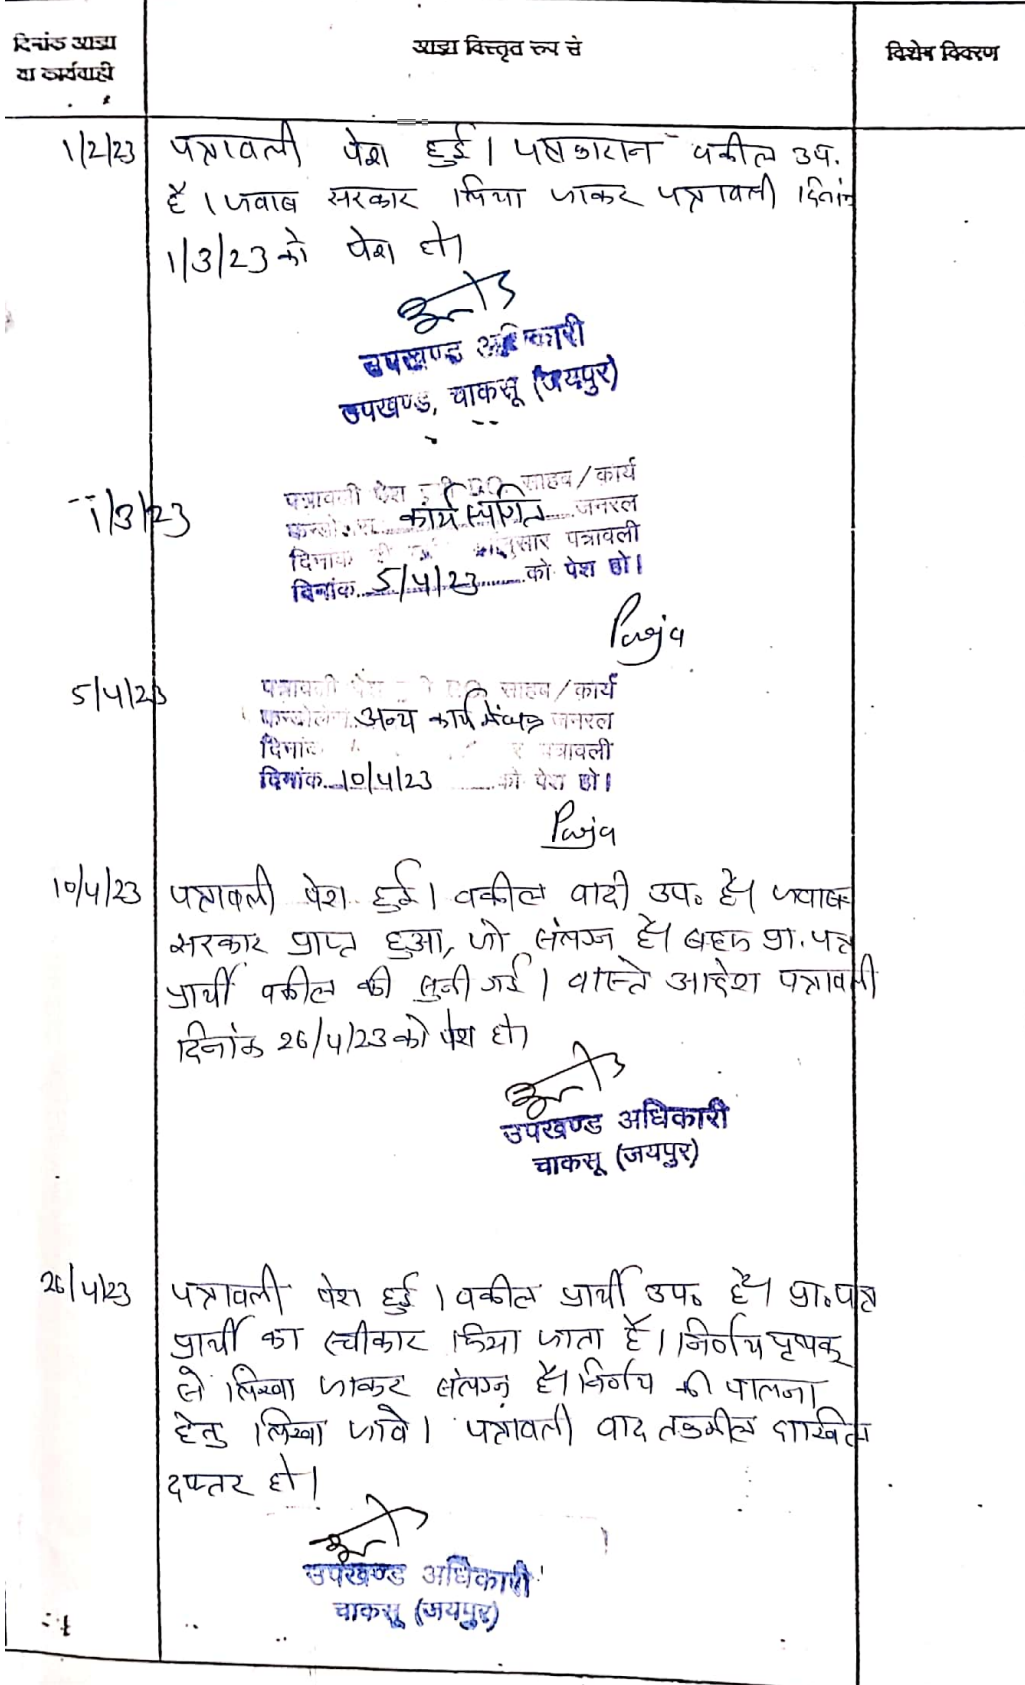 दिनांक आज्ञा
या कार्यवाही
आज्ञा विस्तृत रूप से
विशेष विवरण
1/2/23 पत्रावली पेश हुई। पक्षकारान वकील उप.
है। जवाब सरकार लिया जाकर पत्रावली दिनांक
1/3/23 को पेश हो।
उपखण्ड अधिकारी
उपखण्ड, चाकसू (जयपुर)
1/3/23
पत्रावली पेश साहब/कार्य
कार्य स्थगित जनरल
दिनांक अनुसार पत्रावली
दिनांक 5/4/23 को पेश हो।
Pooja
5/4/23
पत्रावली पेश साहब/कार्य
अन्य कार्य में व्यस्त जनरल
दिनांक पत्रावली
दिनांक 10/4/23 को पेश हो।
Pooja
10/4/23 पत्रावली पेश हुई। वकील वादी उप० है। जवाब
सरकार प्राप्त हुआ, जो संलग्न है। बहस प्रा. पत्र
प्रार्थी वकील की सुनी गई। वास्ते आदेश पत्रावली
दिनांक 26/4/23 को पेश हो।
उपखण्ड अधिकारी
चाकसू (जयपुर)
26/4/23 पत्रावली पेश हुई। वकील प्रार्थी उप० है। प्रा०पत्र
प्रार्थी का स्वीकार किया जाता है। निर्णय पृथक्
से लिखा जाकर संलग्न है। निर्णय की पालना
हेतु लिखा जावे। पत्रावली बाद तकमील दाखिल
दफ्तर हो।
उपखण्ड अधिकारी
चाकसू (जयपुर)